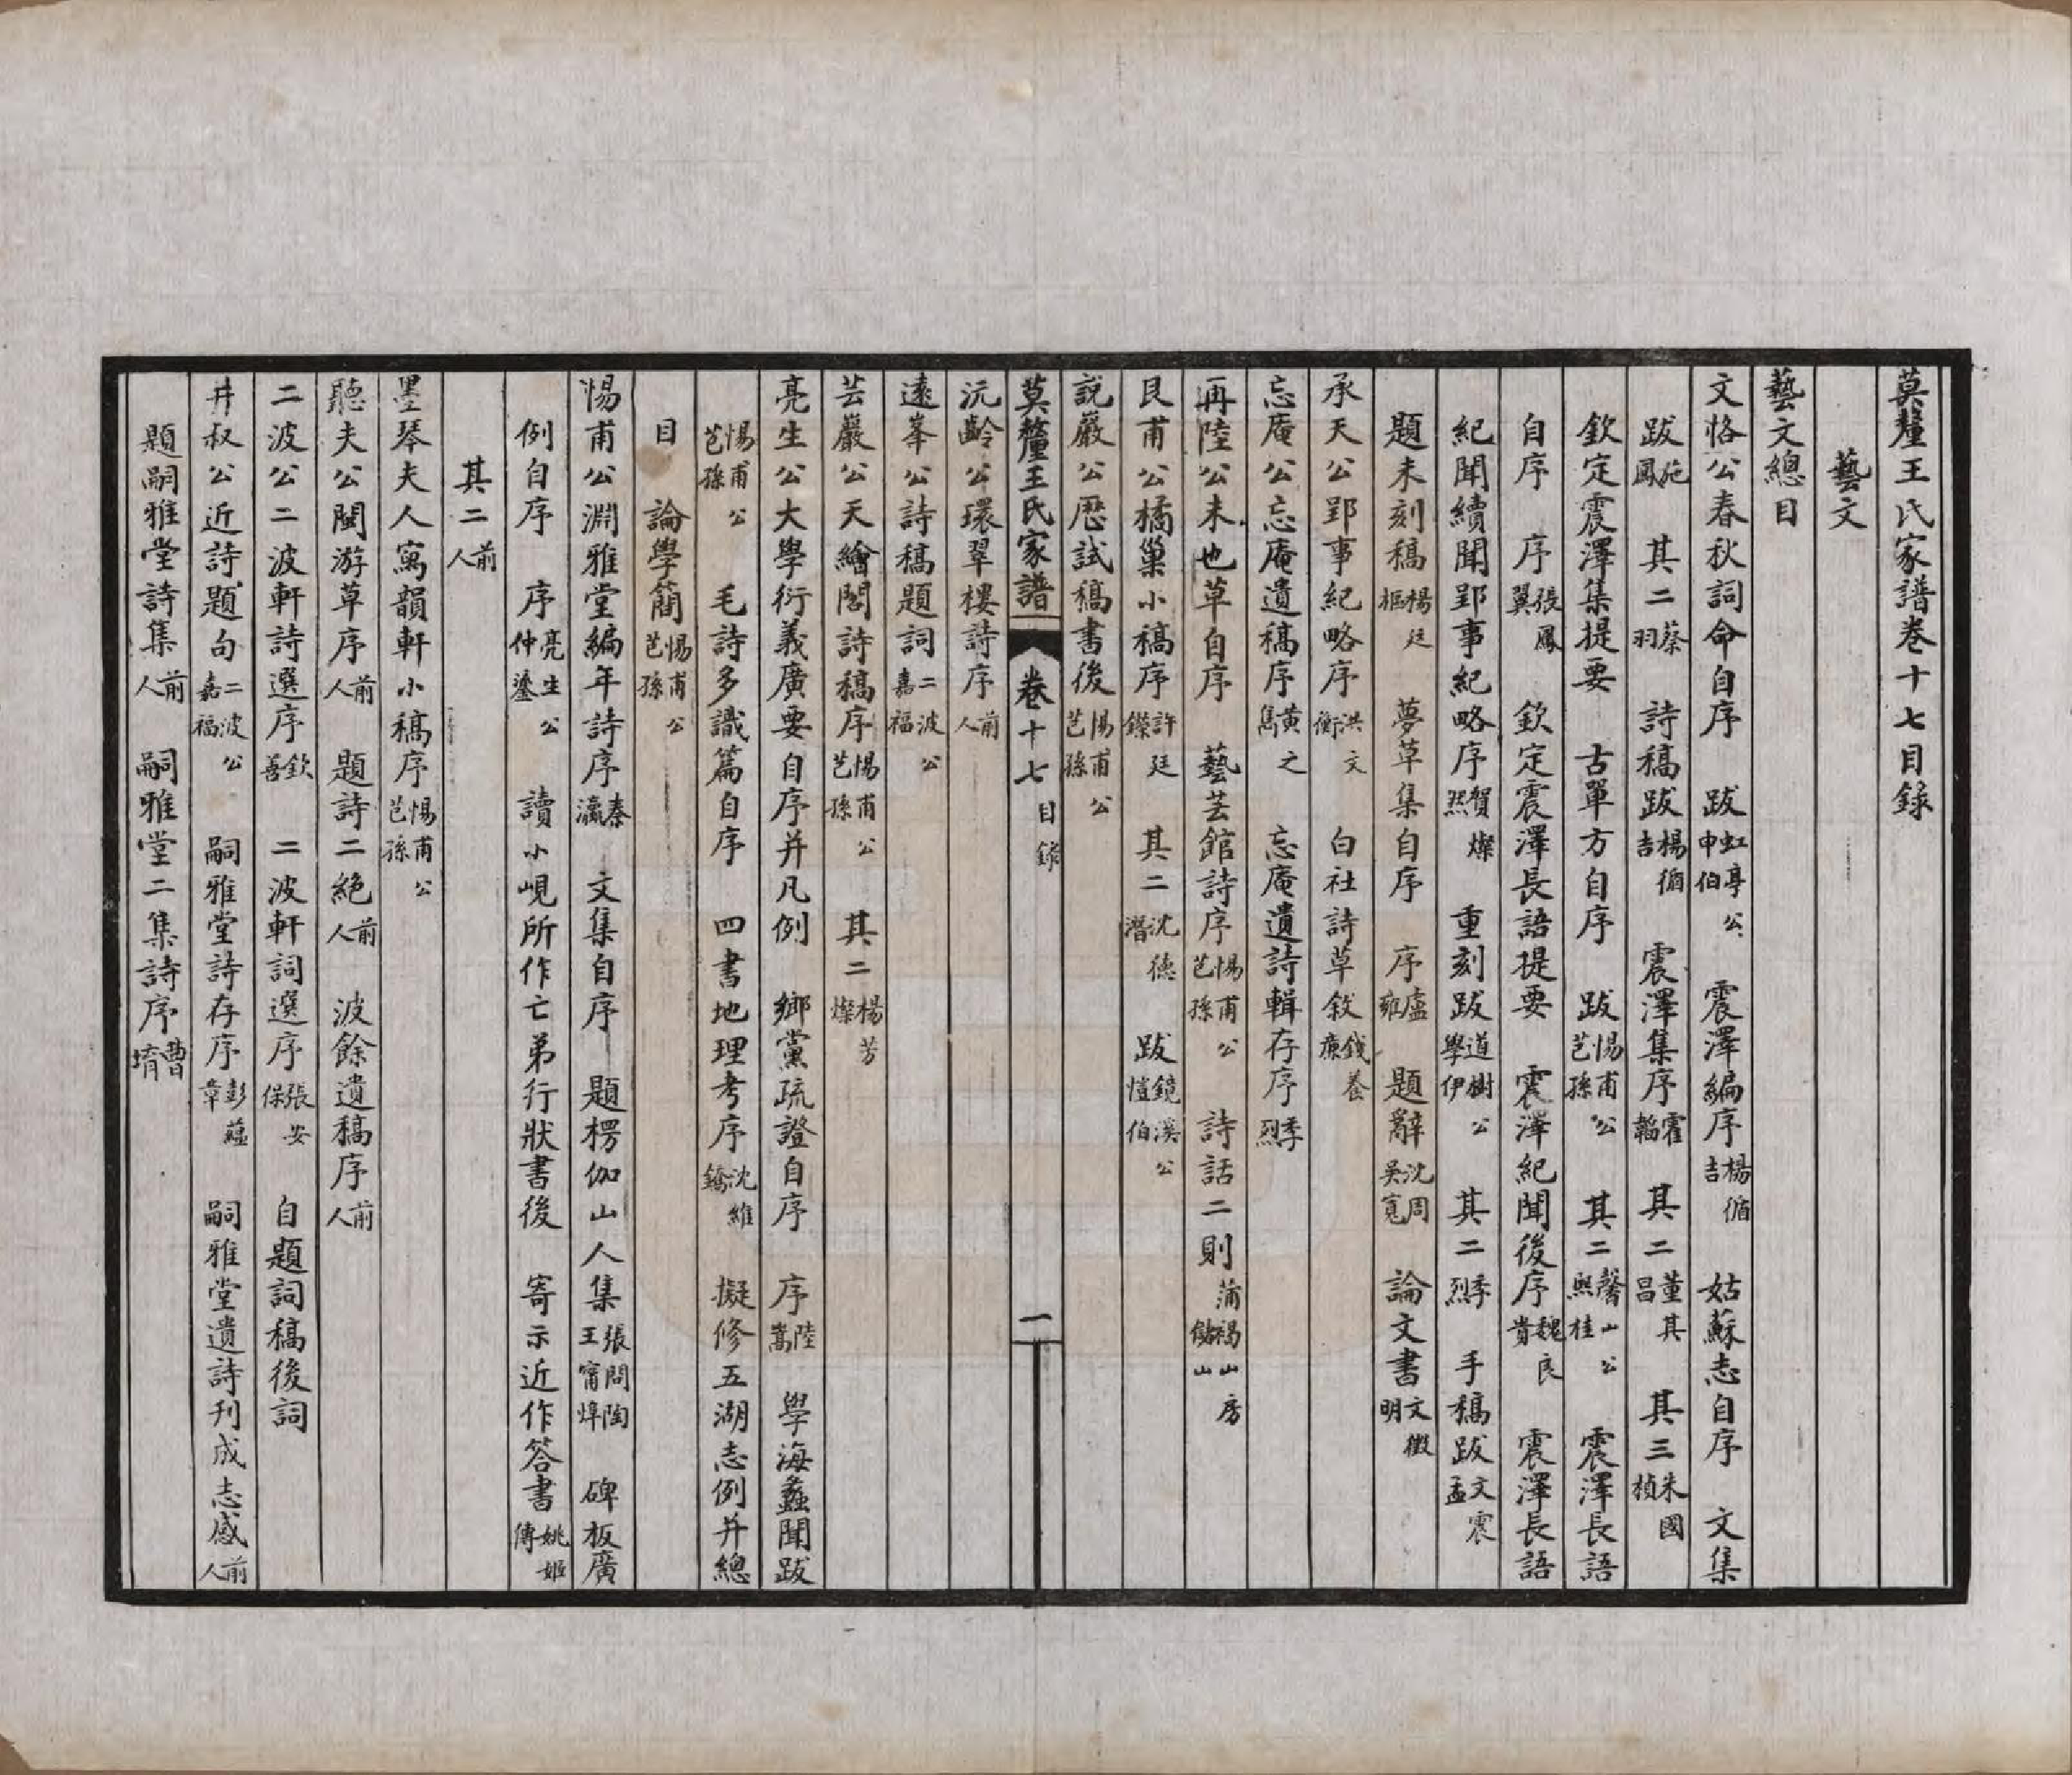 莫釐王氏家譜卷十七目錄
藝文
藝文總目
文恪公春秋詞命自序 跋虹亭公申伯 震澤編序楊循吉 姑蘇志自序 文集
跋施鳳 其二蔡羽 詩稿跋楊循吉 震澤集序霍韜 其二董其昌 其三朱國楨
欽定震澤集提要 古單方自序 跋惕甫公芑孫 其二馨山公熙桂 震澤長語
自序 序張鳳翼 欽定震澤長語提要 震澤紀聞後序魏良貴 震澤長語
紀聞續聞郢事紀略序賀燦然 重刻跋道樹公學伊 其二季烈 手稿跋文震孟
題未刻稿楊廷樞 夢草集自序 序盧雍 題辭沈周吳寬 論文書文徵明
承天公郢事紀略序洪文衡 白社詩草敘錢養廉
忘庵公忘庵遺稿序黃之雋 忘庵遺詩輯存序季烈
再陸公未也草自序 藝芸館詩序惕甫公芑孫 詩話二則蒲褐山房 山
艮甫公橘巢小稿序許廷鑅 其二沈德潛 跋鏡溪公愷伯
說巖公歷試稿書後惕甫公芑孫
莫釐王氏家譜 卷十七 目錄 一
沅齡公環翠樓詩序前人
遠峯公詩稿題詞二波公嘉福
芸巖公天繪閣詩稿序惕甫公芑孫 其二楊芳燦
亮生公大學衍義廣要自序并凡例 鄉黨疏證自序 序陸嵩 學海蠡聞跋
惕甫公芑孫 毛詩多識篇自序 四書地理考序沈維鐈 擬修五湖志例并總
目 論學簡惕甫公芑孫
惕甫公淵雅堂編年詩序秦瀛 文集自序 題楞伽山人集張問陶王甯焯 碑板廣
例自序 序亮生公仲鎏 讀小峴所作亡弟行狀書後 寄示近作答書姚姬傳
其二前人
墨琴夫人寫韻軒小稿序惕甫公芑孫
聽夫公閩游草序前人 題詩二絕前人 波餘遺稿序前人
二波公二波軒詩選序欽善 二波軒詞選序張安保 自題詞稿後詞
井叔公近詩題句二波公嘉福 嗣雅堂詩存序彭蘊章 嗣雅堂遺詩刊成志感前人
題嗣雅堂詩集前人 嗣雅堂二集詩序曹堉